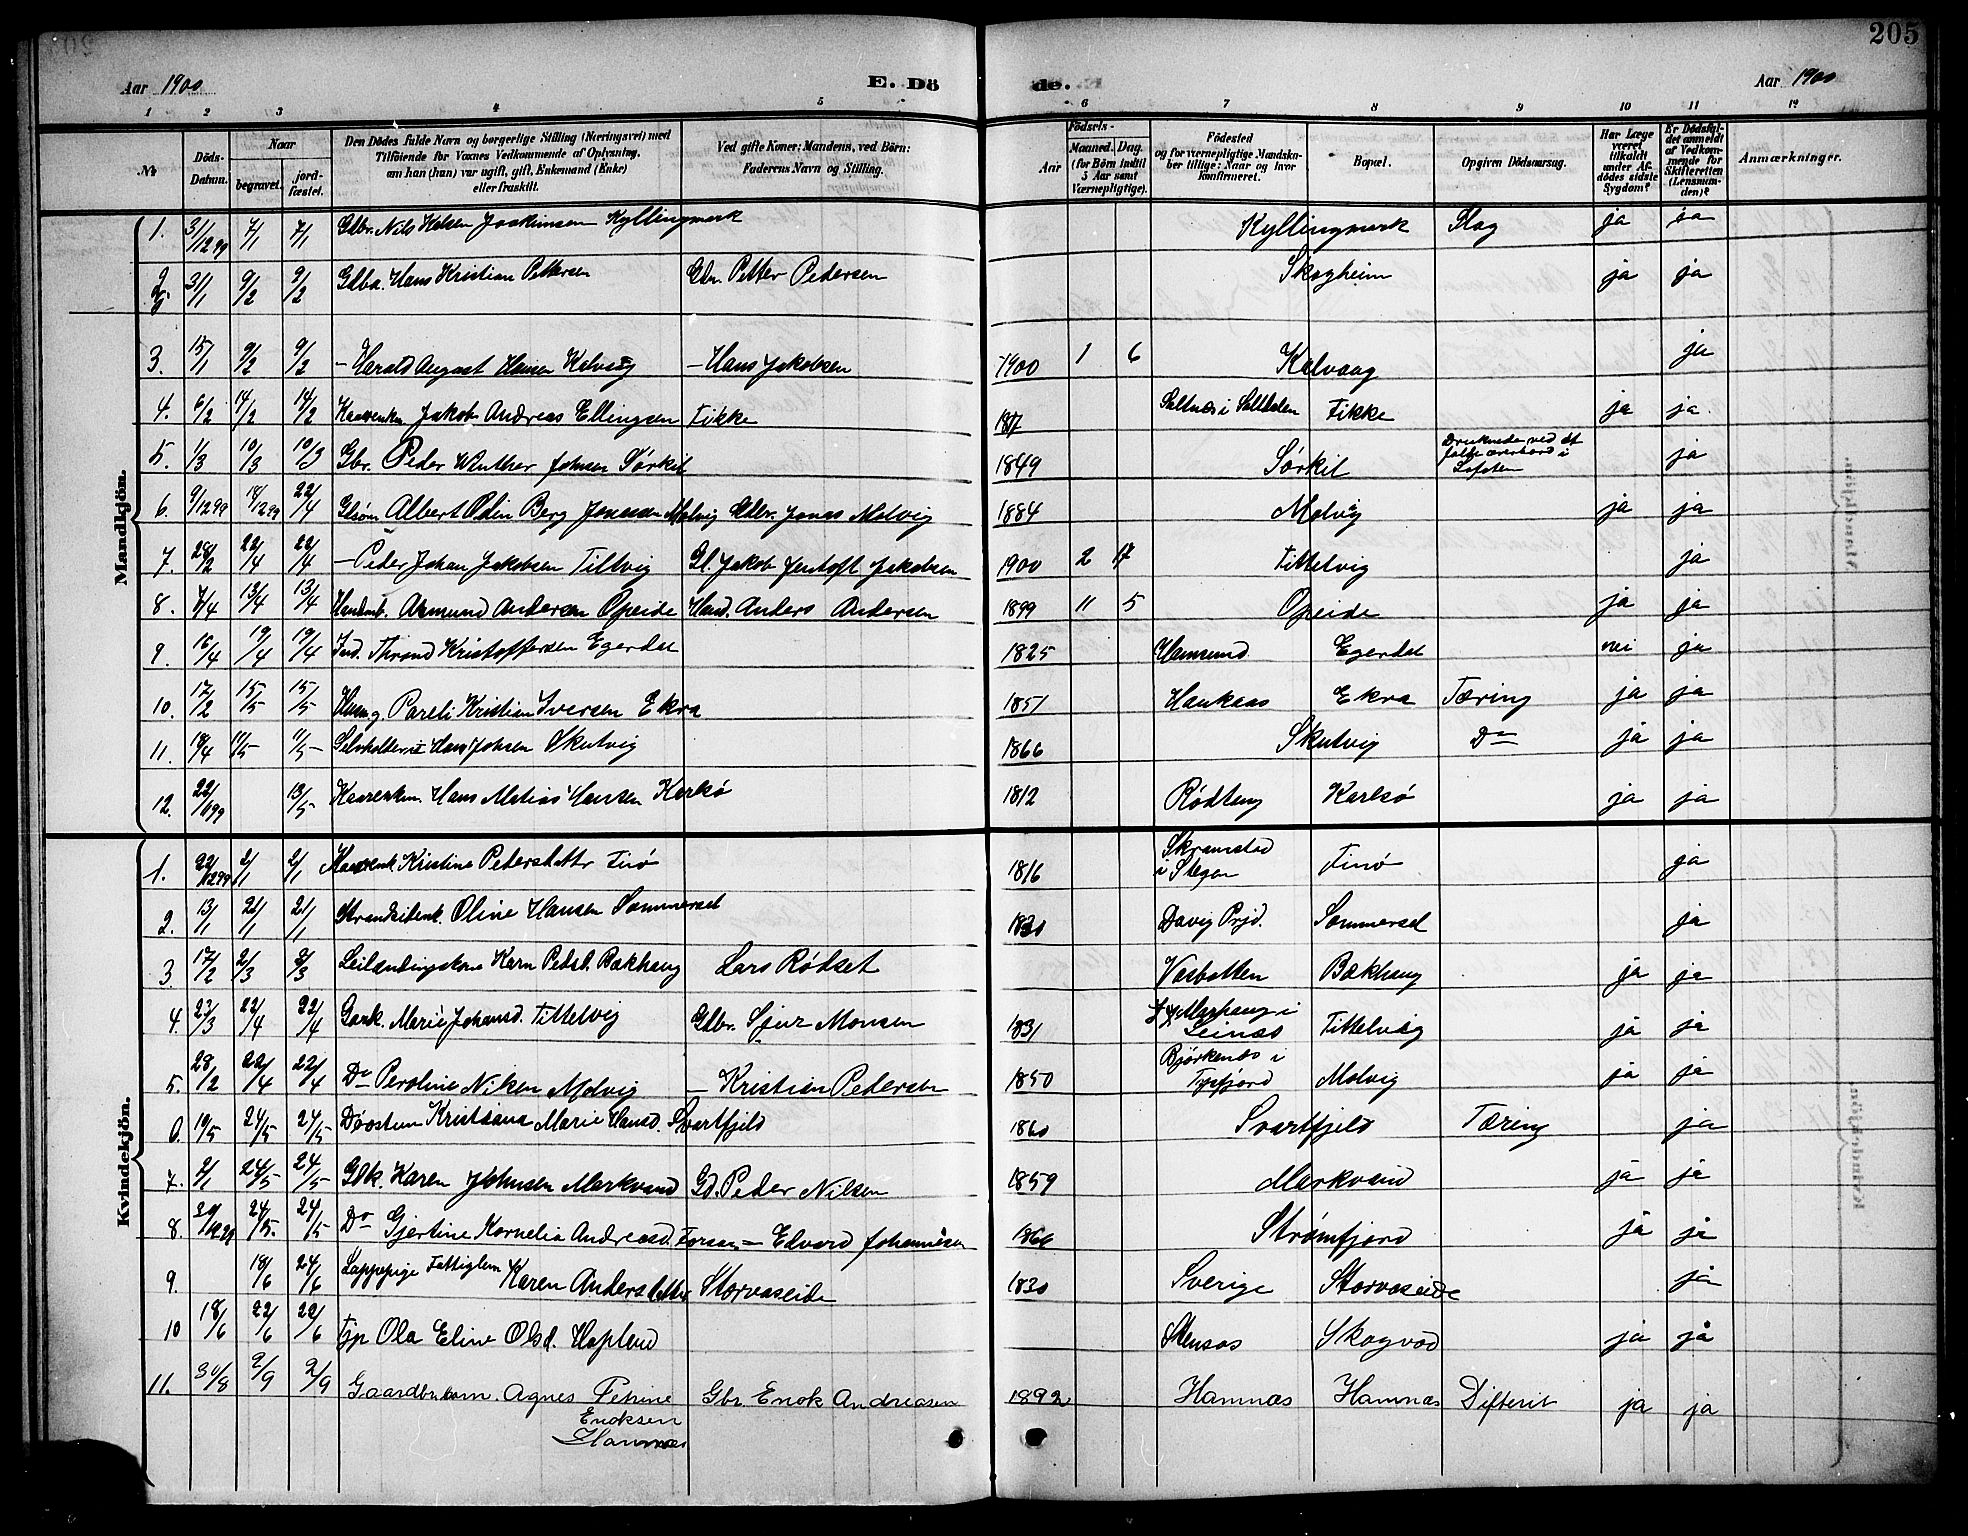 205
Aar 1900 E. Dö de. Aar 1900
1 2 3 4 5 6 7 8 9 10 11 12
№ Döds-Datum. Naar begravet. jordfæstet. Den Dödes fulde Navn og borgerlige Stilling (Næringsvei) med Tilföiende for Voxnes Vedkommende af Oplysning, om han (hun) var ugift, gift, Enkemand (Enke) eller fraskilt. Ved gifte Koner: Mandens, ved Börn: Faderens Navn og Stilling. Aar Födsels- Maaned. Dag. (for Börn indtil 5 Aar samt Værnepligtige). Födested og for værnepligtige Mandskaber tillige: Naar og hvor konfirmeret. Bopæl. Opgiven Dödsaarsag. Har Læge været tilkaldt under Afdödes sidste Sygdom? Er Dödsfaldet anmeldt af Vedkommende for Skifteretten (Lensmanden)? Anmærkninger.
Mandkjön.
1. 31/1299 7/1 7/1 Gbr. Nils Joakimsen Kyllingmark Kyllingmark Slag ja ja
2. 31/1 9/2 9/2 Gdba. Hans Kristian Pettersen Gbr. Petter Pedersen Skogheim ja ja
3. 15/1 9/2 9/2 – Harald August Hansen Kalvåg – Hans Jakobsen 1900 1 6 Kalvaag ja
4. 6/2 14/2 14/2 Jakob Andreas Ellingsen Fikke 1817 Saltnæs i Saltdalen Fikke ja ja
5. 1/3 10/3 10/3 Gbr. Peder Winther Johnsen Sørkil 1849 Sørkil Druknede ved at falde overbord i Lofoten ja
6. 9/1299 18/1299 22/4 Gbsøn Albert Odin Berg Jonassen Molvig Gbr. Jonas Molvig 1884 Molvig ja ja
7. 28/2 22/4 22/4 – Peder Johan Jakobsen Tiltvig Gl. Jakob Jentoft Jakobsen 1900 2 17 Tittelvig ja
8. 7/4 13/4 13/4 Handmb. Asmund Andersen Opeide Hand. Anders Andersen 1899 11 5 Opeide ja ja
9. 16/4 19/4 19/4 Ind. Thrond Kristoffersen Egerdal 1825 Hamsund Egerdal nei ja
10. 17/2 15/5 15/5 Pareli Kristian Iversen Ekra 1851 Haukaas Ekra Tæring ja ja
11. 18/4 11/5 11/5 Hans Johsen Skutvig 1866 Skutvig Do ja ja
12. 22/1099 13/5 Kaarenkm. Hans Matias Hansen Karlsø 1812 Rødtang Karlsø ja ja
Kvindekjön.
1. 22/1299 2/1 2/1 Kaarenk. Kristine Pedersdatter Finø 1816 Skramstad i Stegen Finø ja
2. 13/1 21/1 21/1 Strandsidenk. Oline Hansen Sommersel 1830 Davig Prjd. Sommersel ja
3 17/2 2/3 2/3 Leilændingskone Karn Pedsd. Bakhaug Lars Rødset Vasbotten Bakhaug ja ja
4. 23/3 22/4 22/4 Gaark. Marie Johansd. Tittelvig Gdbr. Sjur Monsen 1831 i Leinæs Tittelvig ja ja
5. 28/2 22/4 22/4 Do Peroline Nilsen Molvig – Kristian Pedersen 1850 Bjørkenæs i Tysfjord Molvig ja ja
6. 19/5 24/5 24/5 Kristiana Marie Hansd. Svartfjeld 1860 Svartfjeld Tæring ja
7. 2/1 24/5 24/5 Gbk. Karen Johnsen Markvand Gd. Peder Nilsen 1859 Markvand ja ja
8. 24/5. 24/5 Do Gjertine Kornelia Andreasd. Forsan – Edvard Johannesen 1866 Strømfjord ja ja
9. 18/6 24/6 Lappepige Fattiglem Karen Andersdatter Storvaseide 1830 Sverige Storvaseide ja
10 18/6 22/6 22/6 Tjp Ola Eline Olsd. Hoplund Stensøs Skogvod ja ja
11. 30/8 2/9 2/9 Gaardbr. barn. Agnes Petrine Enoksen Hamnæs Gbr Enok Andreasen 1892 Hamnæs Hamnæs Difterit ja ja